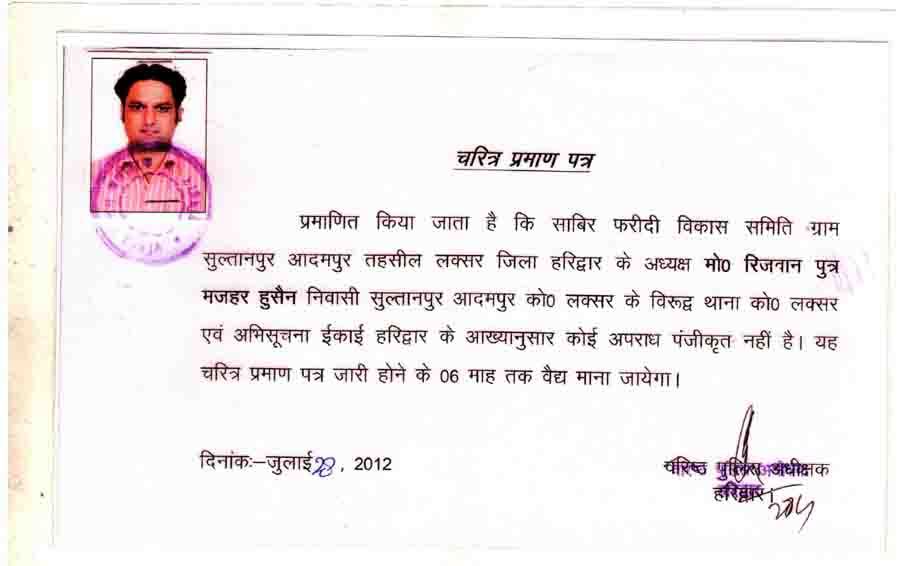 चरित्र प्रमाण पत्र
प्रमाणित किया जाता है कि साबिर फरीदी विकास समिति ग्राम
सुल्तानपुर आदमपुर तहसील लक्सर जिला हरिद्वार के अध्यक्ष मो0 रिजवान पुत्र
मजहर हुसैन निवासी सुल्तानपुर आदमपुर को0 लक्सर के विरूद्व थाना को0 लक्सर
एवं अभिसूचना ईकाई हरिद्वार के आख्यानुसार कोई अपराध पंजीकृत नहीं है। यह
चरित्र प्रमाण पत्र जारी होने के 06 माह तक वैद्य माना जायेगा।
दिनांकः–जुलाई 28, 2012
वरिष्ठ पुलिस अधीक्षक
हरिद्वार।